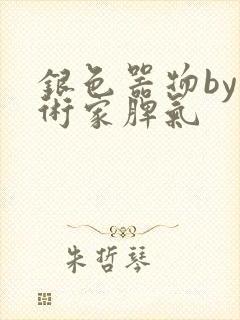 銀色器物by
術家脾氣
朱哲琴